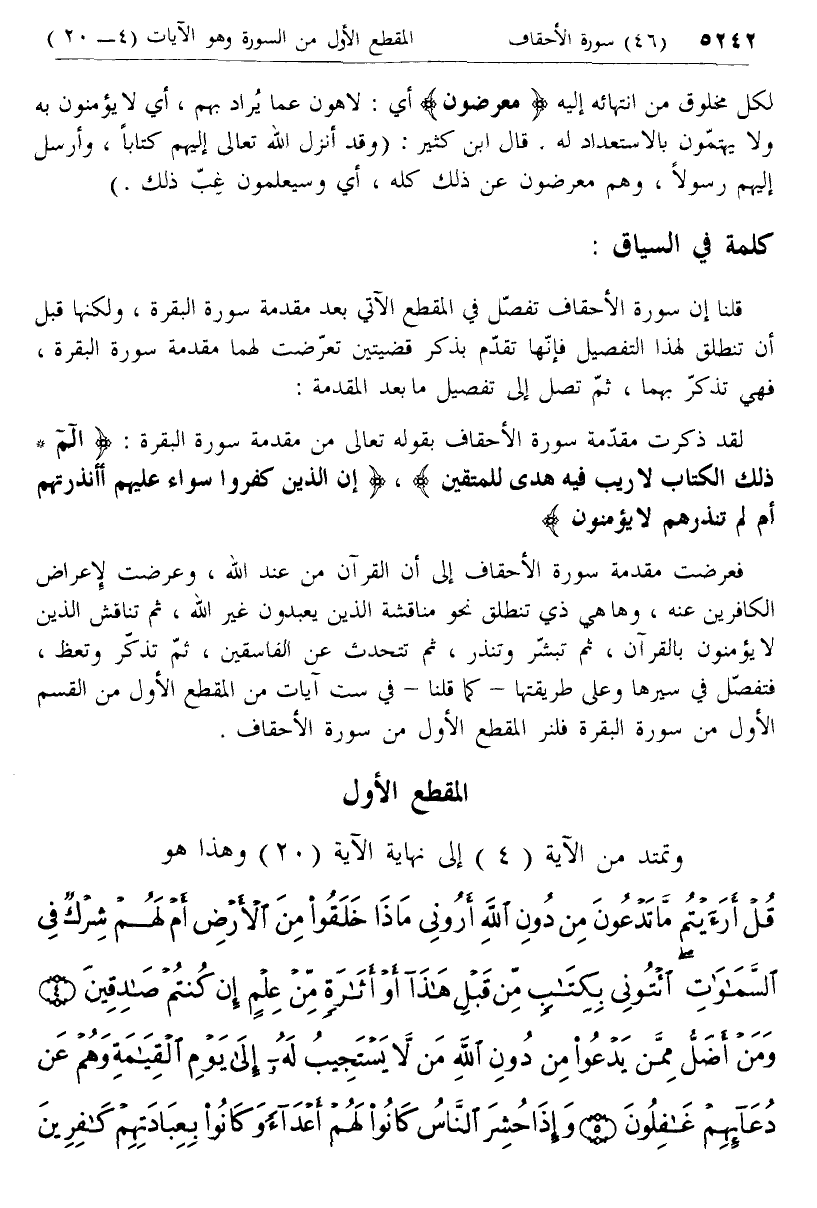 ٥٢٤٢ (٤٦) سورة الأحقاف المقطع الأول من السورة وهو الآيات (٤ – ٢٠)
لكل مخلوق من انتهائه إليه ﴿ معرضون ﴾ أي : لاهون عما يُراد بهم ، أي لا يؤمنون به
ولا يهتمّون بالاستعداد له . قال ابن كثير : (وقد أنزل الله تعالى إليهم كتاباً ، وأرسل
إليهم رسولاً ، وهم معرضون عن ذلك كله ، أي وسيعلمون غِبّ ذلك .)
كلمة في السياق :
قلنا إن سورة الأحقاف تفصّل في المقطع الآتي بعد مقدمة سورة البقرة ، ولكنها قبل
أن تنطلق لهذا التفصيل فإنّها تقدّم بذكر قضيتين تعرّضت لهما مقدمة سورة البقرة ،
فهي تذكرّ بهما ، ثمّ تصل إلى تفصيل ما بعد المقدمة :
لقد ذكرت مقدّمة سورة الأحقاف بقوله تعالى من مقدمة سورة البقرة : ﴿ الٓمٓ *
ذلك الكتاب لا ريب فيه هدى للمتقين ﴾ ، ﴿ إن الذين كفروا سواء عليهم أأنذرتهم
أم لم تنذرهم لا يؤمنون ﴾
فعرضت مقدمة سورة الأحقاف إلى أن القرآن من عند الله ، وعرضت لإعراض
الكافرين عنه ، وها هي ذي تنطلق نحو مناقشة الذين يعبدون غير الله ، ثم تناقش الذين
لا يؤمنون بالقرآن ، ثم تبشّر وتنذر ، ثم تتحدث عن الفاسقين ، ثمّ تذكّر وتعظ ،
فتفصّل في سيرها وعلى طريقتها – كما قلنا – في ست آيات من المقطع الأول من القسم
الأول من سورة البقرة فلنر المقطع الأول من سورة الأحقاف .
المقطع الأول
وتمتد من الآية ( ٤ ) إلى نهاية الآية (٢٠) وهذا هو
قُلْ أَرَءَيْتُم مَّا تَدْعُونَ مِن دُونِ ٱللَّهِ أَرُونِي مَاذَا خَلَقُواْ مِنَ ٱلْأَرْضِ أَمْ لَهُمْ شِرْكٌ فِي
ٱلسَّمَٰوَٰتِ ۖ ٱئْتُونِي بِكِتَٰبٍ مِّن قَبْلِ هَٰذَآ أَوْ أَثَٰرَةٍ مِّنْ عِلْمٍ إِن كُنتُمْ صَٰدِقِينَ ﴿٤﴾
وَمَنْ أَضَلُّ مِمَّن يَدْعُواْ مِن دُونِ ٱللَّهِ مَن لَّا يَسْتَجِيبُ لَهُۥٓ إِلَىٰ يَوْمِ ٱلْقِيَٰمَةِ وَهُمْ عَن
دُعَآئِهِمْ غَٰفِلُونَ ﴿٥﴾ وَإِذَا حُشِرَ ٱلنَّاسُ كَانُواْ لَهُمْ أَعْدَآءً وَكَانُواْ بِعِبَادَتِهِمْ كَٰفِرِينَ